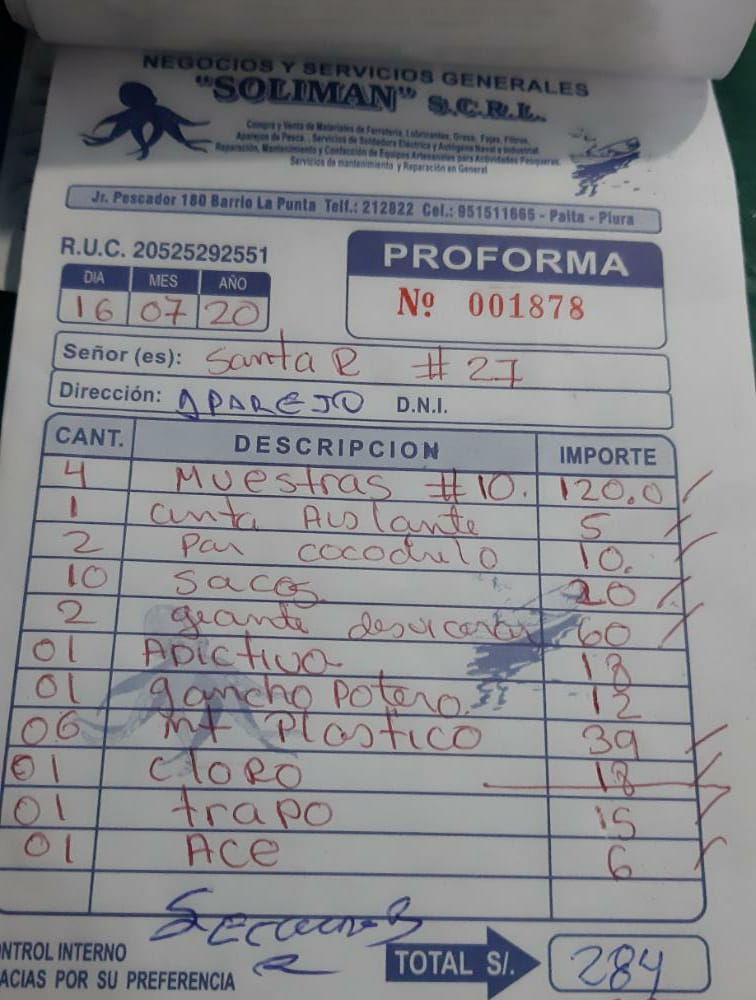 NEGOCIOS Y SERVICIOS GENERALES
"SOLIMAN" S.C.R.L.
Compra y Venta de Materiales de Ferretería, Lubricantes, Grasa, Fajas, Filtros,
Aparejos de Pesca, Servicios de Soldadura Eléctrica y Autógena Naval e Industrial,
Reparación, Mantenimiento y Confección de Equipos Artesanales para Actividades Pesqueras
Servicios de mantenimiento y Reparación en General
Jr. Pescador 180 Barrio La Punta Telf.: 212822 Cel.: 951511665 - Paita - Piura
R.U.C. 20525292551
PROFORMA
Nº 001878
DIA MES AÑO
16 07 20
Señor (es): Santa R # 27
Dirección: APAREJO D.N.I.
CANT. DESCRIPCION IMPORTE
4 Muestras #10. 120.0
1 cinta Aislante 5
2 Par cocodrilo 10.
10 Sacos 20
2 guante 60
01 ADictivo 18
01 gancho Potero. 12
06 mt Plastico 39
01 CloRo 18
01 trapo 15
01 ACe 6
NTROL INTERNO
ACIAS POR SU PREFERENCIA
TOTAL S/. 284